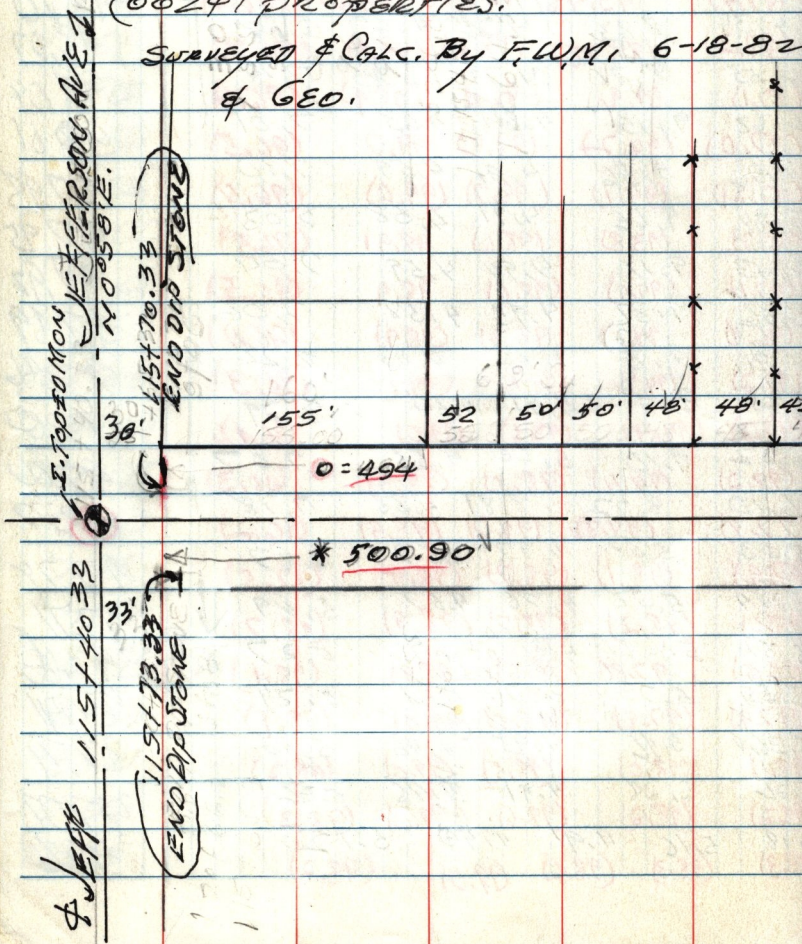 PROPERTIES.
SURVEYED & CALC. By F.W.M. 6-18-82
& GEO.
JEFFERSON AVE
N0°58'E.
115+70.33
END DIP STONE
30'
155' 52 50' 50' 48' 48'
0=494
* 500.90
33'
115+40.33
115+73.33
END DIP STONE
JEFF